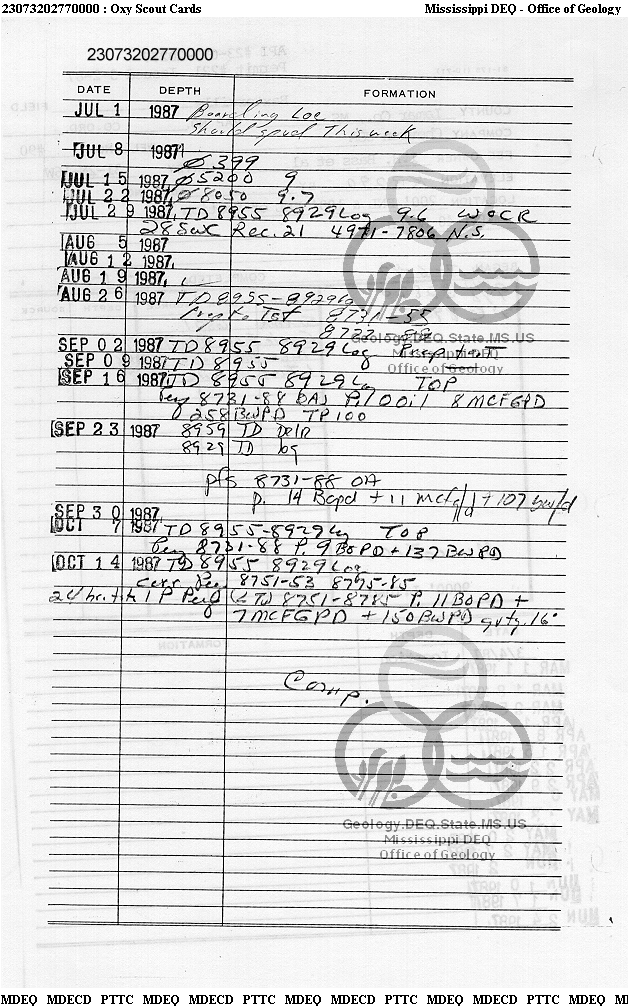 23073202770000 : Oxy Scout Cards Mississippi DEQ - Office of Geology
23073202770000
DATE DEPTH FORMATION
JUL 1 1987 Boarding Loc
Should spud This week
JUL 8 1987 Ø 399
JUL 15 1987, Ø 5200 9
JUL 22 1987, Ø 8050 9.7
JUL 29 1987, TD 8955 8929 Log 9.6 WOCR
28 SWC Rec. 21 4971-7806 N.S.
AUG 5 1987
AUG 12 1987,
AUG 19 1987,
AUG 26 1987 TD 8955-8929 Lg
Prep to Tst 8731-55
SEP 02 1987 TD 8955 8929 Log Prep to T
SEP 09 1987 TD 8955
SEP 16 1987 TD 8955 8929 Lg TOP
8731-88 OA) P. 10 Oil 8 MCFGPD
258 BWPD TP 100
SEP 23 1987 8959 TD Delr
8929 TD log
pfs 8731-88 OA
p. 14 Bopd + 11 mcfg/d + 107 bw/d
SEP 30 1987
OCT 7 1987 TD 8955-8929 Lg TOP
8731-88 P. 9 BOPD + 137 BWPD
OCT 14 1987 TD 8955 8929 Log
8751-53 8775-85
24 hr. IP Perf 8751-8785 P. 11 BOPD +
7 MCFGPD + 150 BWPD gvty. 16°
Comp.
Geology.DEQ.State.MS.US
Mississippi DEQ
Office of Geology
Geology.DEQ.State.MS.US
Mississippi DEQ
Office of Geology
MDEQ MDECD PTTC MDEQ MDECD PTTC MDEQ MDECD PTTC MDEQ MDECD PTTC MDEQ M